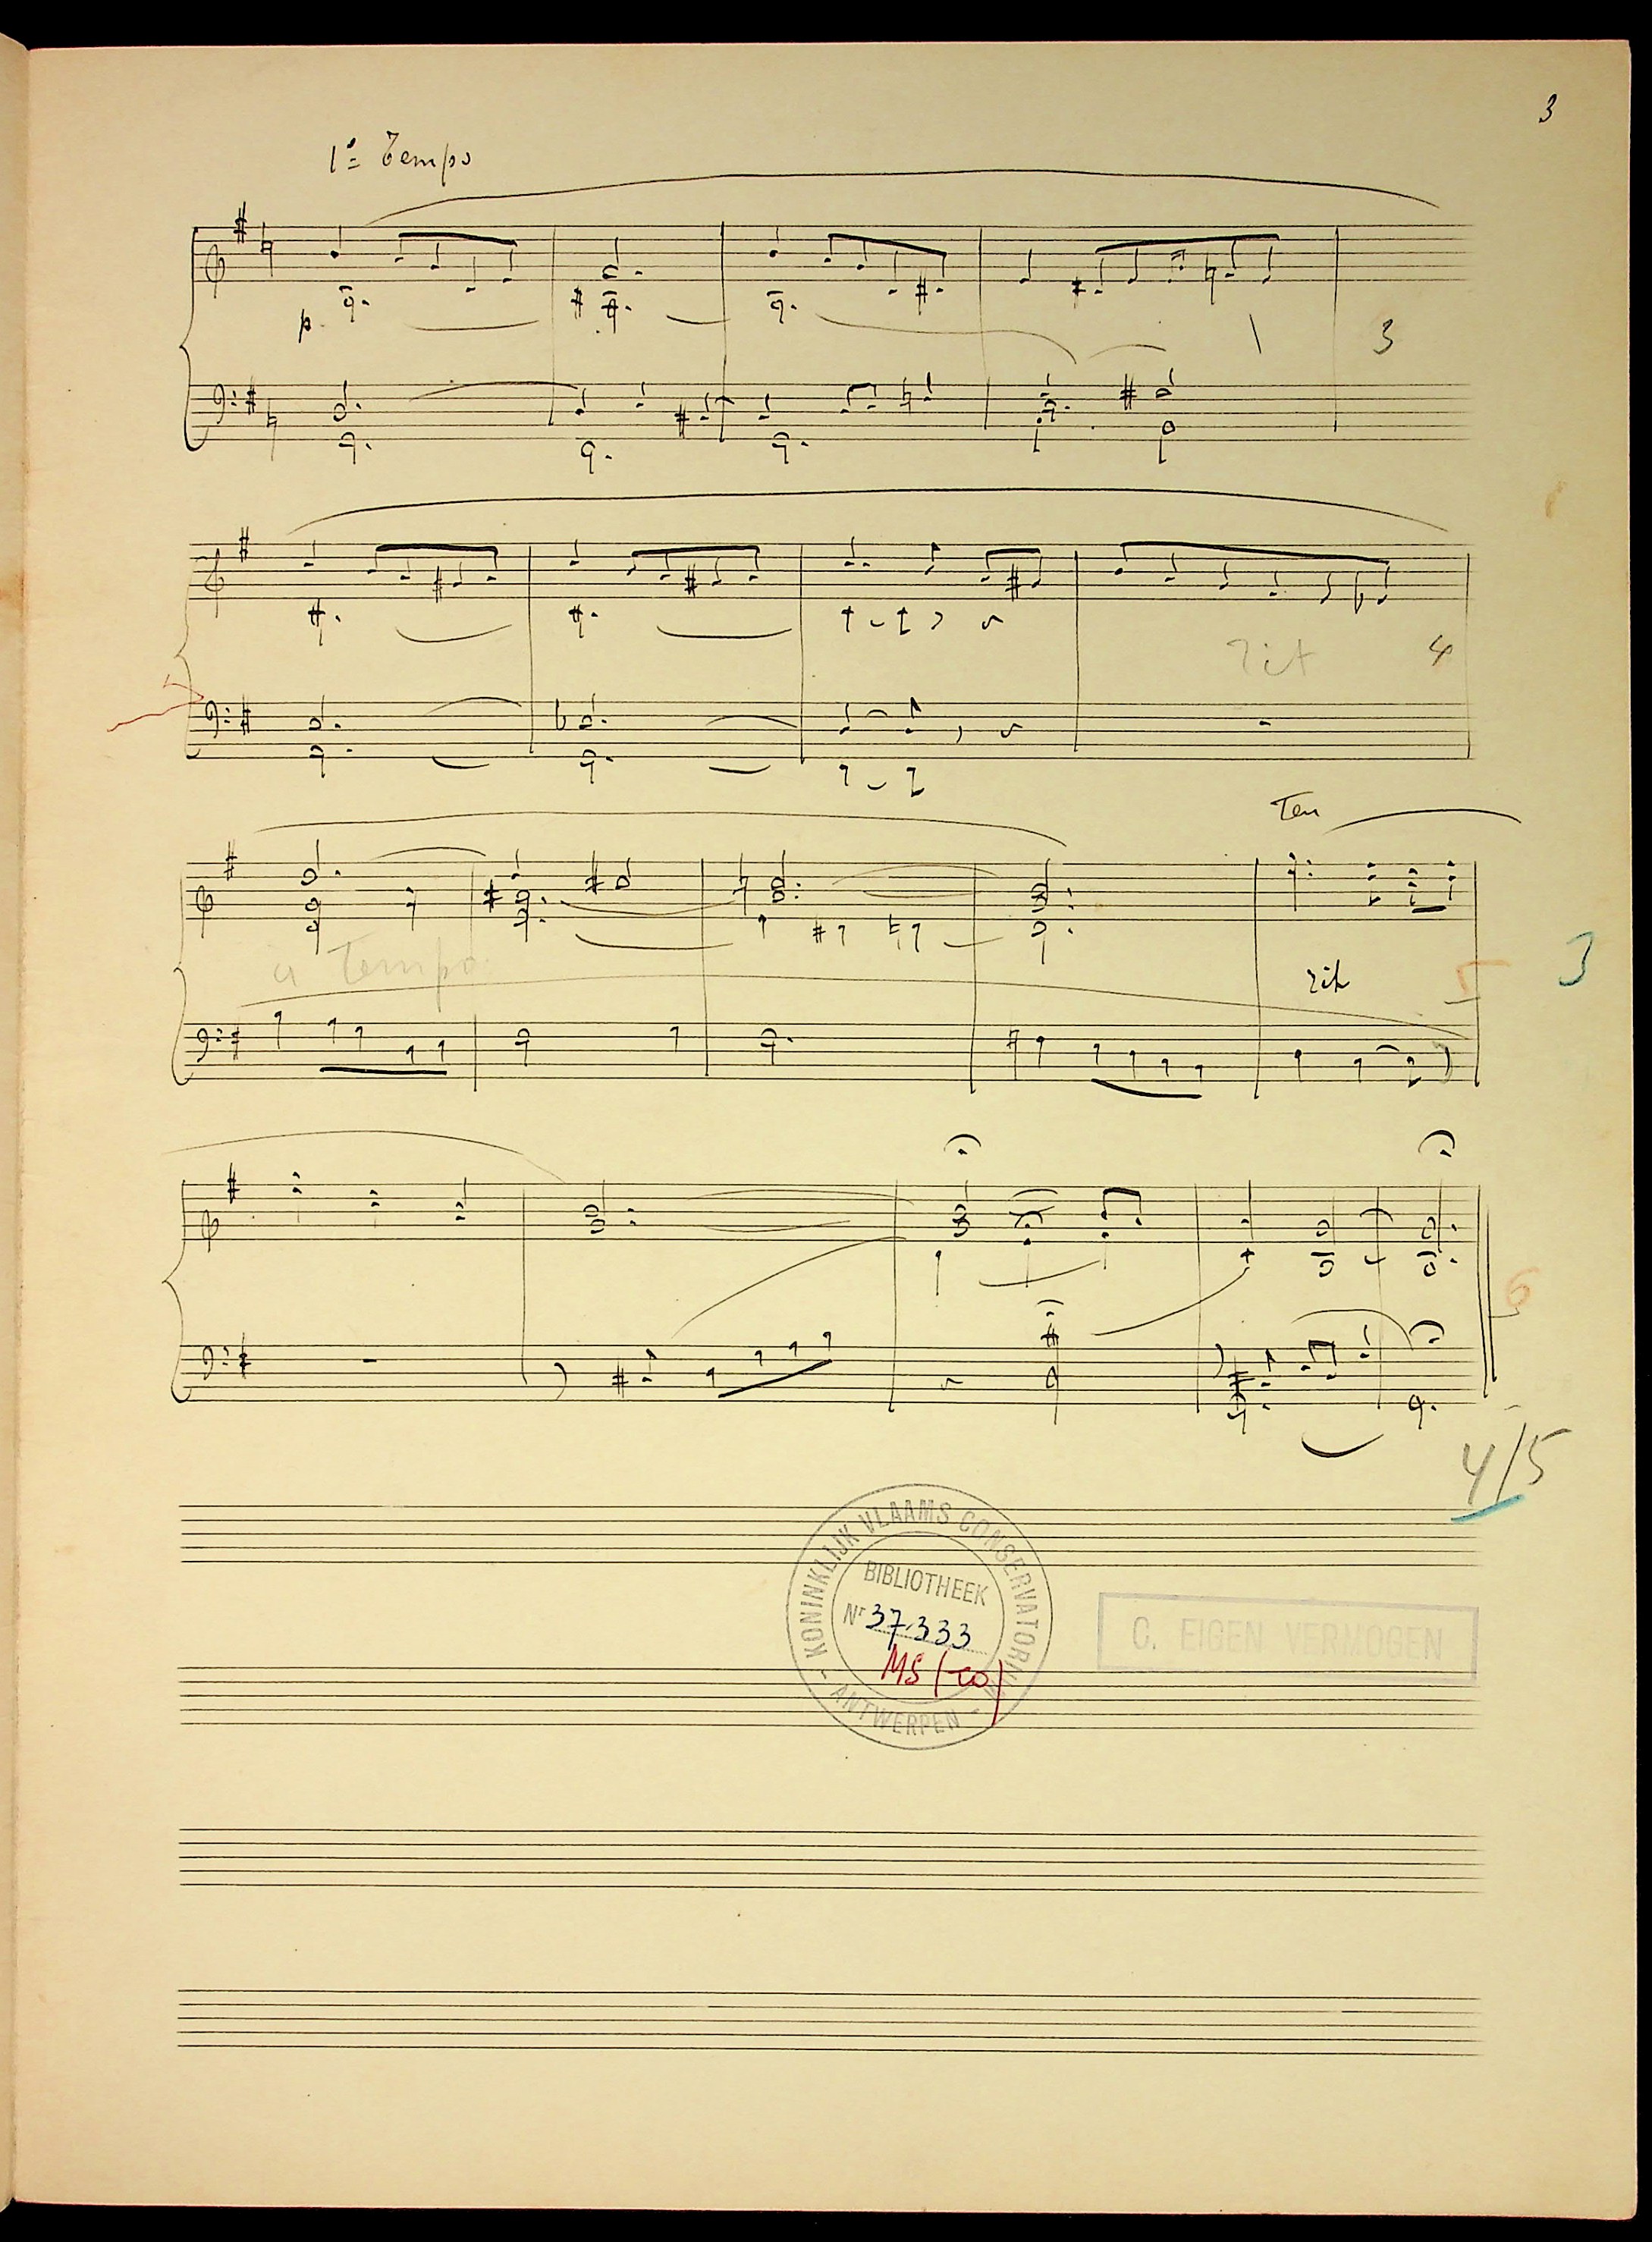 3
1º Tempo
p
3
rit
4
Ten
a Tempo
rit
5
3
6
4/5
KONINKLIJK VLAAMS CONSERVATORIUM
BIBLIOTHEEK
Nr 37.333
MS (co)
- ANTWERPEN -
C. EIGEN VERMOGEN